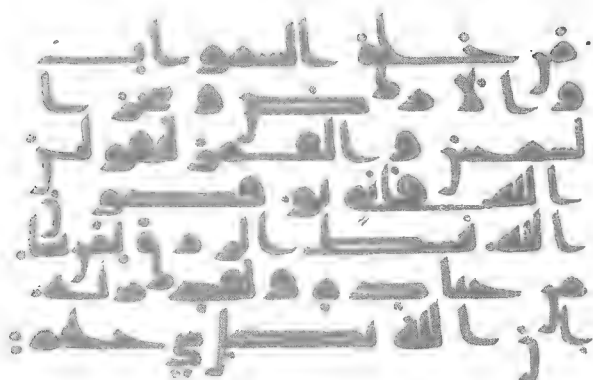 من خلق السموت
والارض وسخر ا
لشمس والقمر ليقولن
الله فانى يوفكون
الله يبسط الرزق لمن يشا
من عباده ويقدر له
ان الله بكل شى عليم